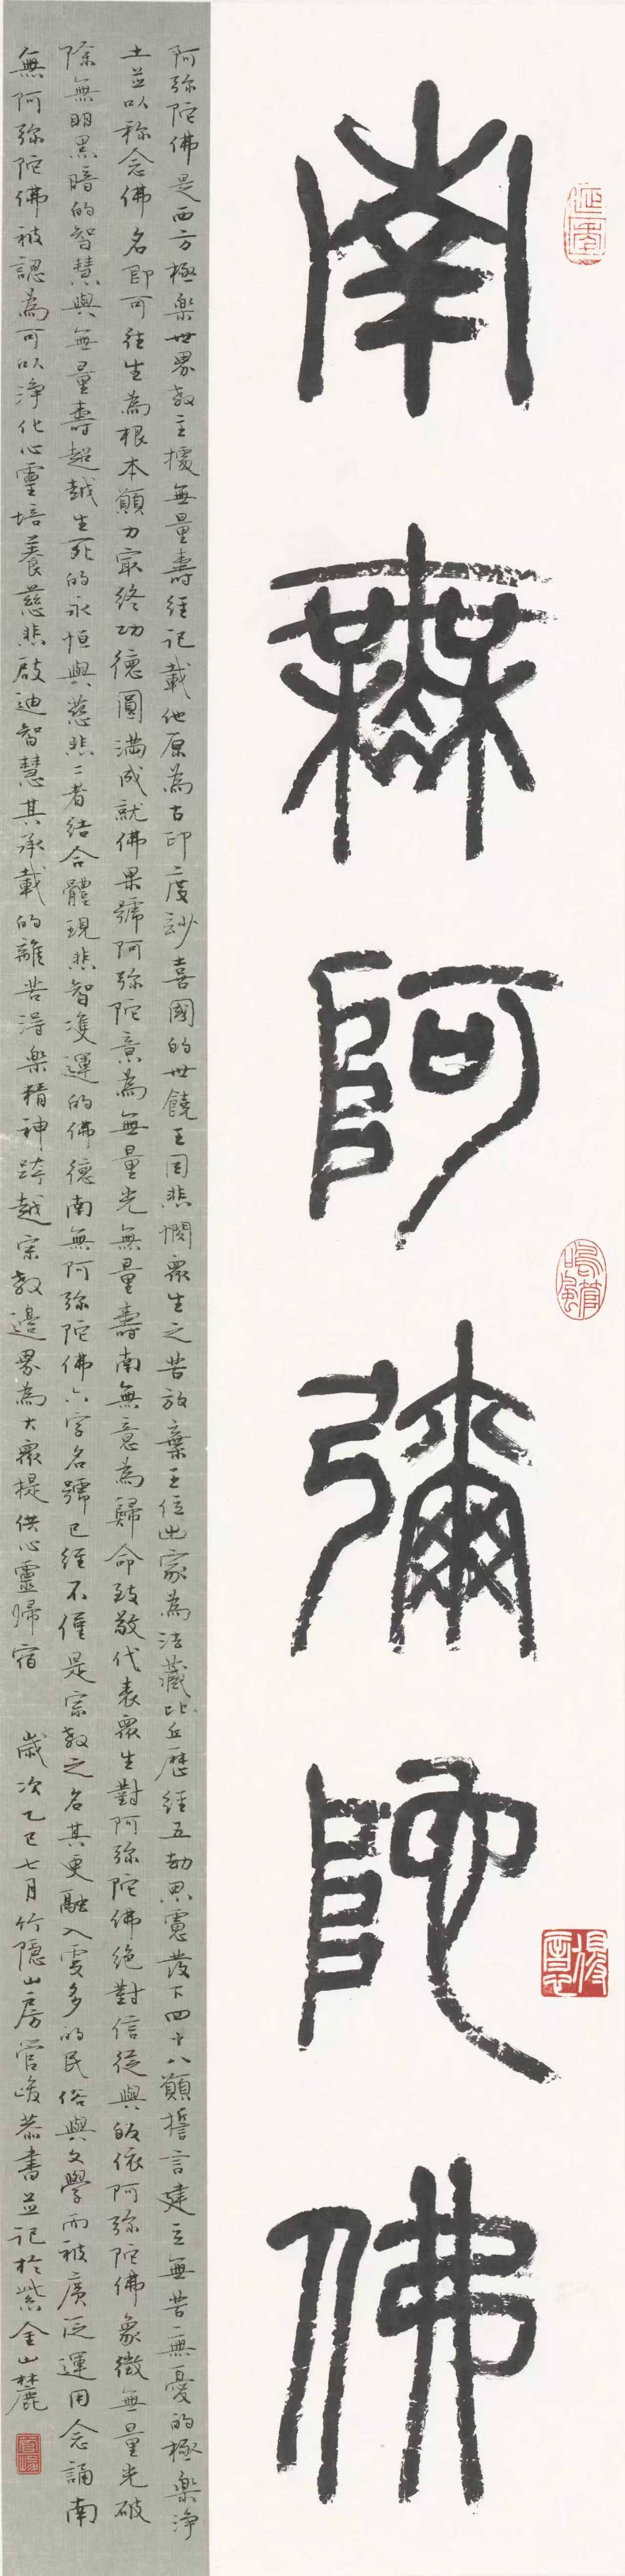 南無阿彌陀佛
阿弥陀佛是西方極楽世界教主據無量壽经记載他原為古印度妙喜國的世饒王因悲憫眾生之苦放棄王位出家為法藏比丘歷经五劫思慮發下四十八願誓言建立無苦無憂的極楽净
土並以称念佛名即可往生為根本願力最终功德圓满成就佛果號阿弥陀意為無量光無量壽南無意為歸命致敬代表眾生對阿弥陀佛絶對信從與皈依阿弥陀佛象徵無量光破
除無明黑暗的智慧與無量壽超越生死的永恒與慈悲二者结合體現悲智雙運的佛德南無阿弥陀佛六字名號已经不僅是宗教之名其更融入更多的民俗與文學而被廣泛運用念誦南
無阿弥陀佛被認為可以淨化心靈培養慈悲啟迪智慧其承載的離苦得楽精神跨越宗教邊界為大眾提供心靈歸宿 歲次乙巳七月竹隱山房管峻恭書並记於紫金山麓